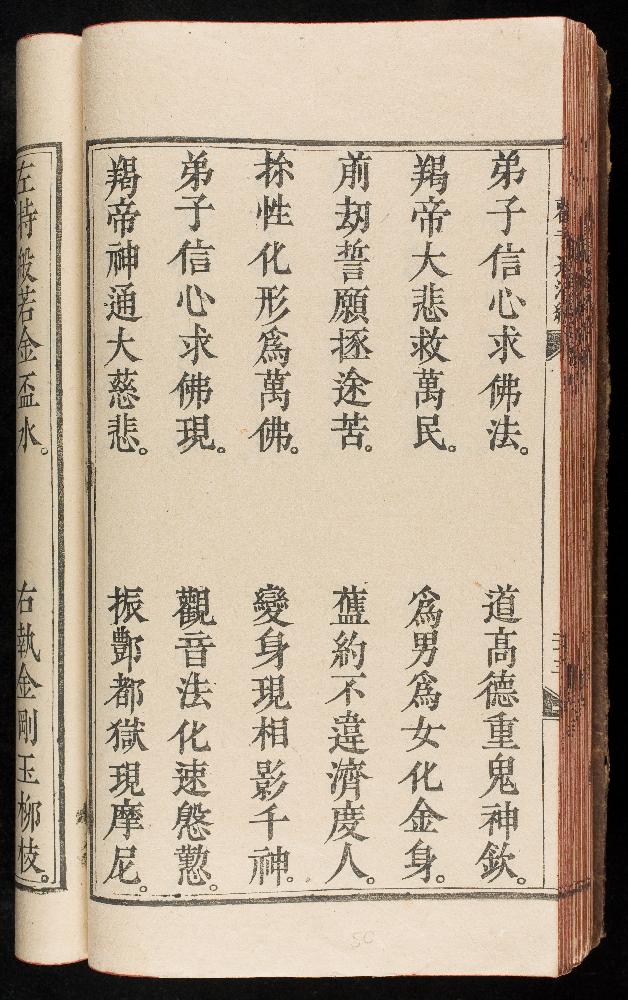 弟子信心求佛法。 道高德重鬼神欽。
羯帝大悲救萬民。 為男為女化金身。
前劫誓願拯途苦。 舊約不違濟度人。
捈性化形為萬佛。 變身現相影千神。
弟子信心求佛現。 觀音法化速慇懃。
羯帝神通大慈悲。 振酆都獄現摩尼。
左持般若金盃水。 右執金剛玉柳枝。